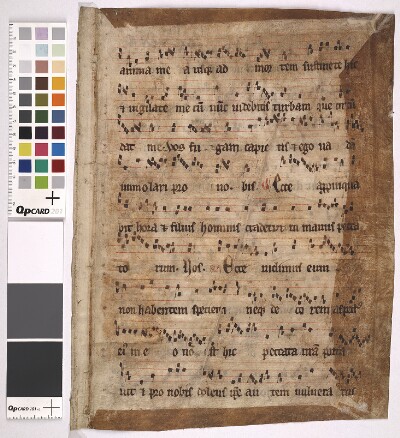 anima mea usq; ad mortem sustinete hic
& vigilate mecū nūc videbitis turbam que circū
dat me. Vos fugam capietis & ego vadā
immolari pro nobis. Ecce appropinqua
bit hora & filius hominis tradetur in manus pecca
torum. Vos. Ecce vidimus eum
non habentem speciem neq; decorem aspec
ei in eo nō est hic peccata nr̄a porta
uit & pro nobis dolet ip̄e autem vulnera tus
QpCARD 201
QpCARD 201